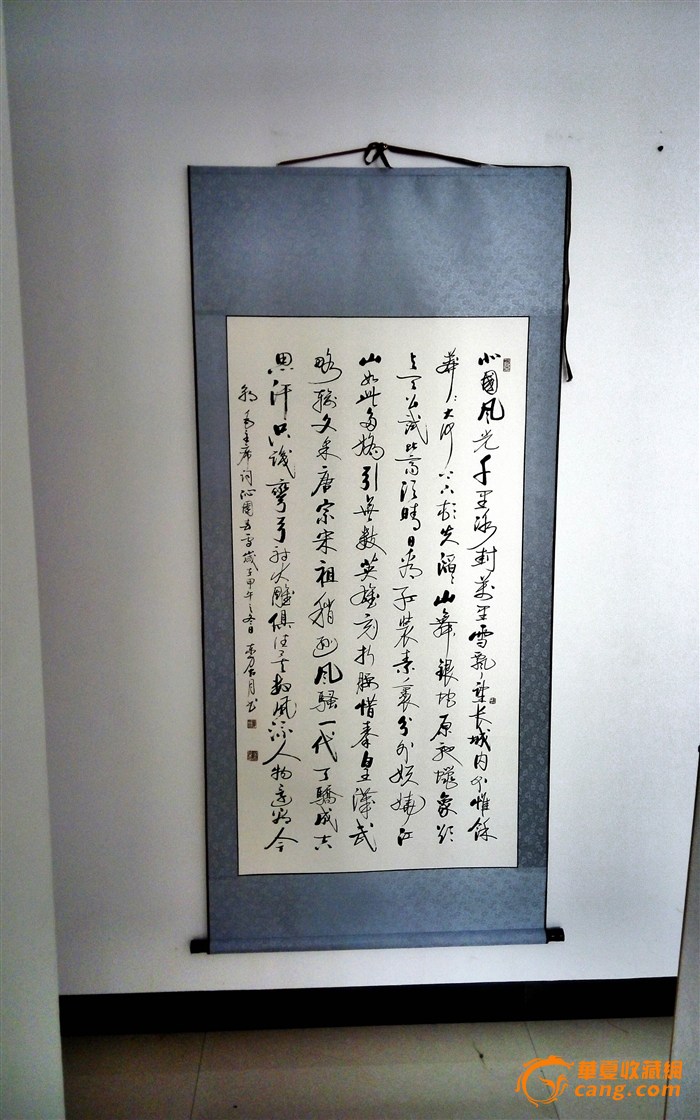 北國风光千里冰封萬里雪飘望长城内外惟餘
莽〻大河上下顿失滔〻山舞銀蛇原驰蠟象欲
与天公试比高须晴日看红装素裹分外妖娆江
山如此多嬌引無数英雄竞折腰惜秦皇漢武
略输文采唐宗宋祖稍逊风騷一代天驕成吉
思汗只識彎弓射大雕俱往矣数风流人物還看今
朝 毛主席词沁園春雪歲于甲午之冬日 月书
華夏收藏網
cang.com